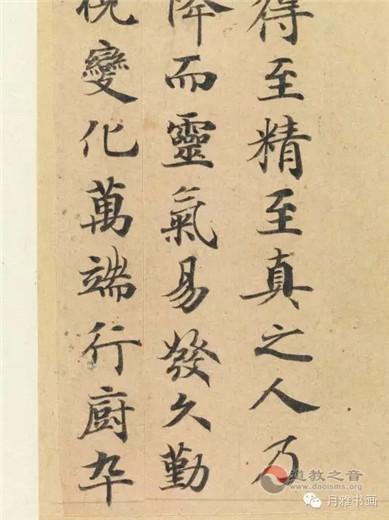 得至精至真之人乃
降而靈氣易發久勤
視變化萬端行廚卒
道教之音
www.daoisms.org
月雅书画